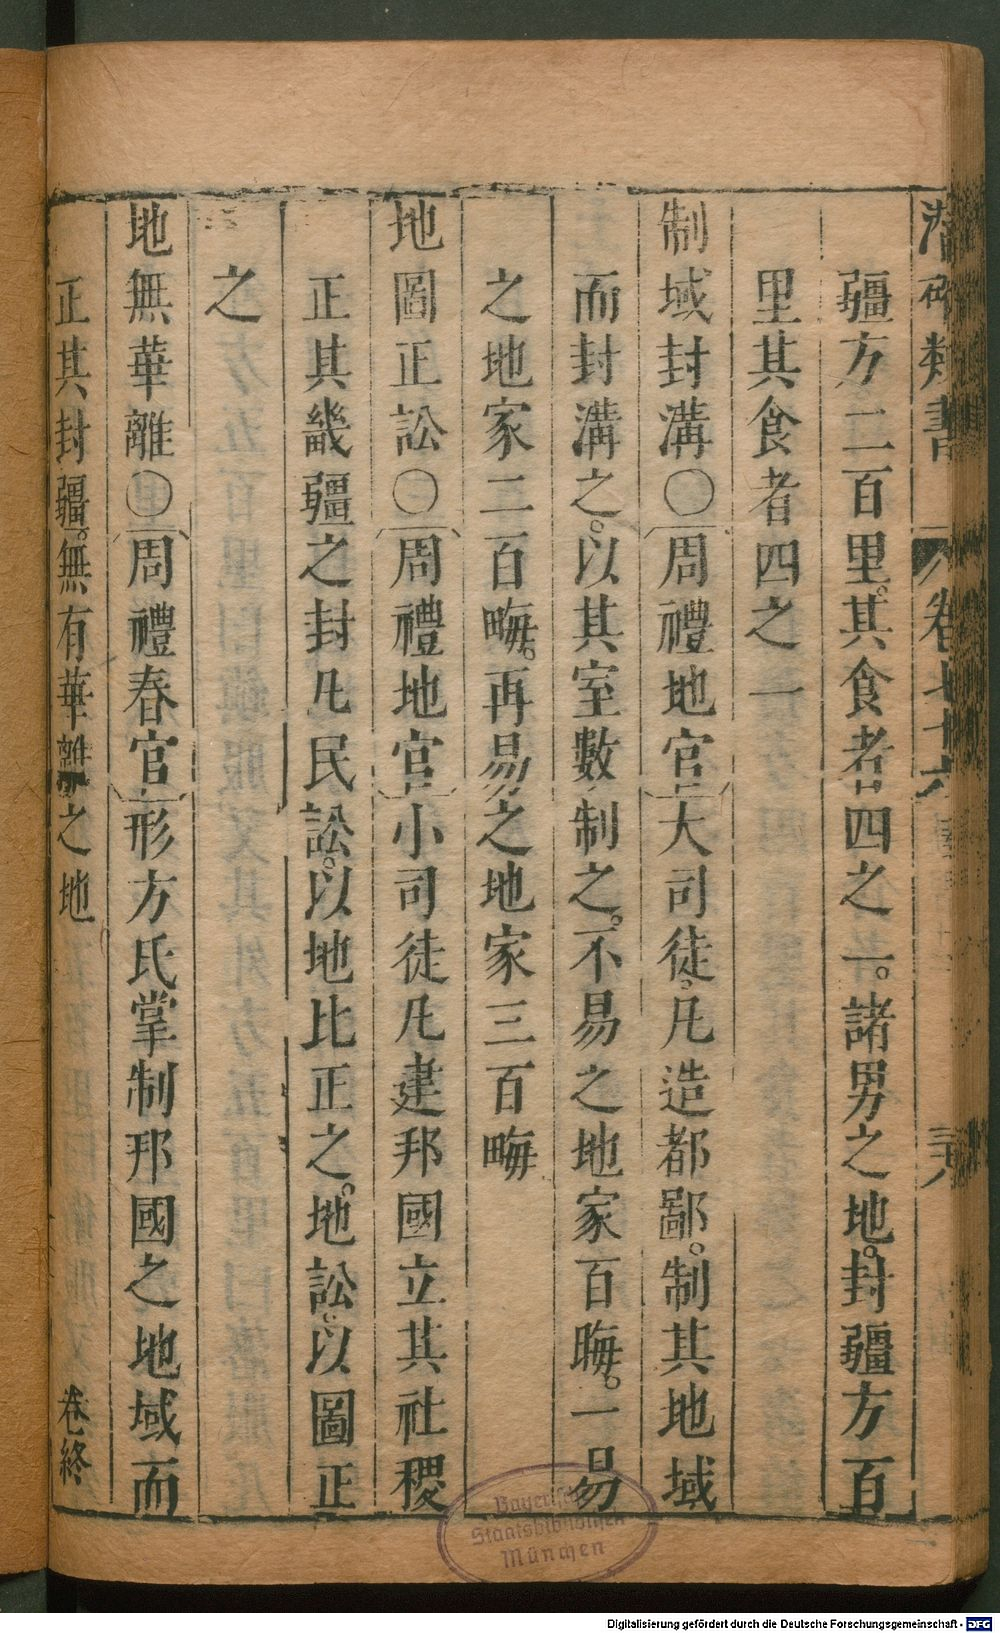 潛確類書 卷七十六 三八
疆方二百里。其食者四之一。諸男之地。封疆方百
里其食者四之一
制域封溝〇周禮地官大司徒。凡造都鄙。制其地域
而封溝之。以其室數制之。不易之地家百畮。一易
之地家二百畮。再易之地家三百畮
地圖正訟〇周禮地官小司徒凡建邦國立其社稷
正其畿疆之封凡民訟。以地比正之。地訟。以圖正
之
地無華離〇周禮春官形方氏掌制邦國之地域而
正其封疆。無有華離之地 卷終
Bayerische
Staatsbibliothek
München
Digitalisierung gefördert durch die Deutsche Forschungsgemeinschaft - DFG